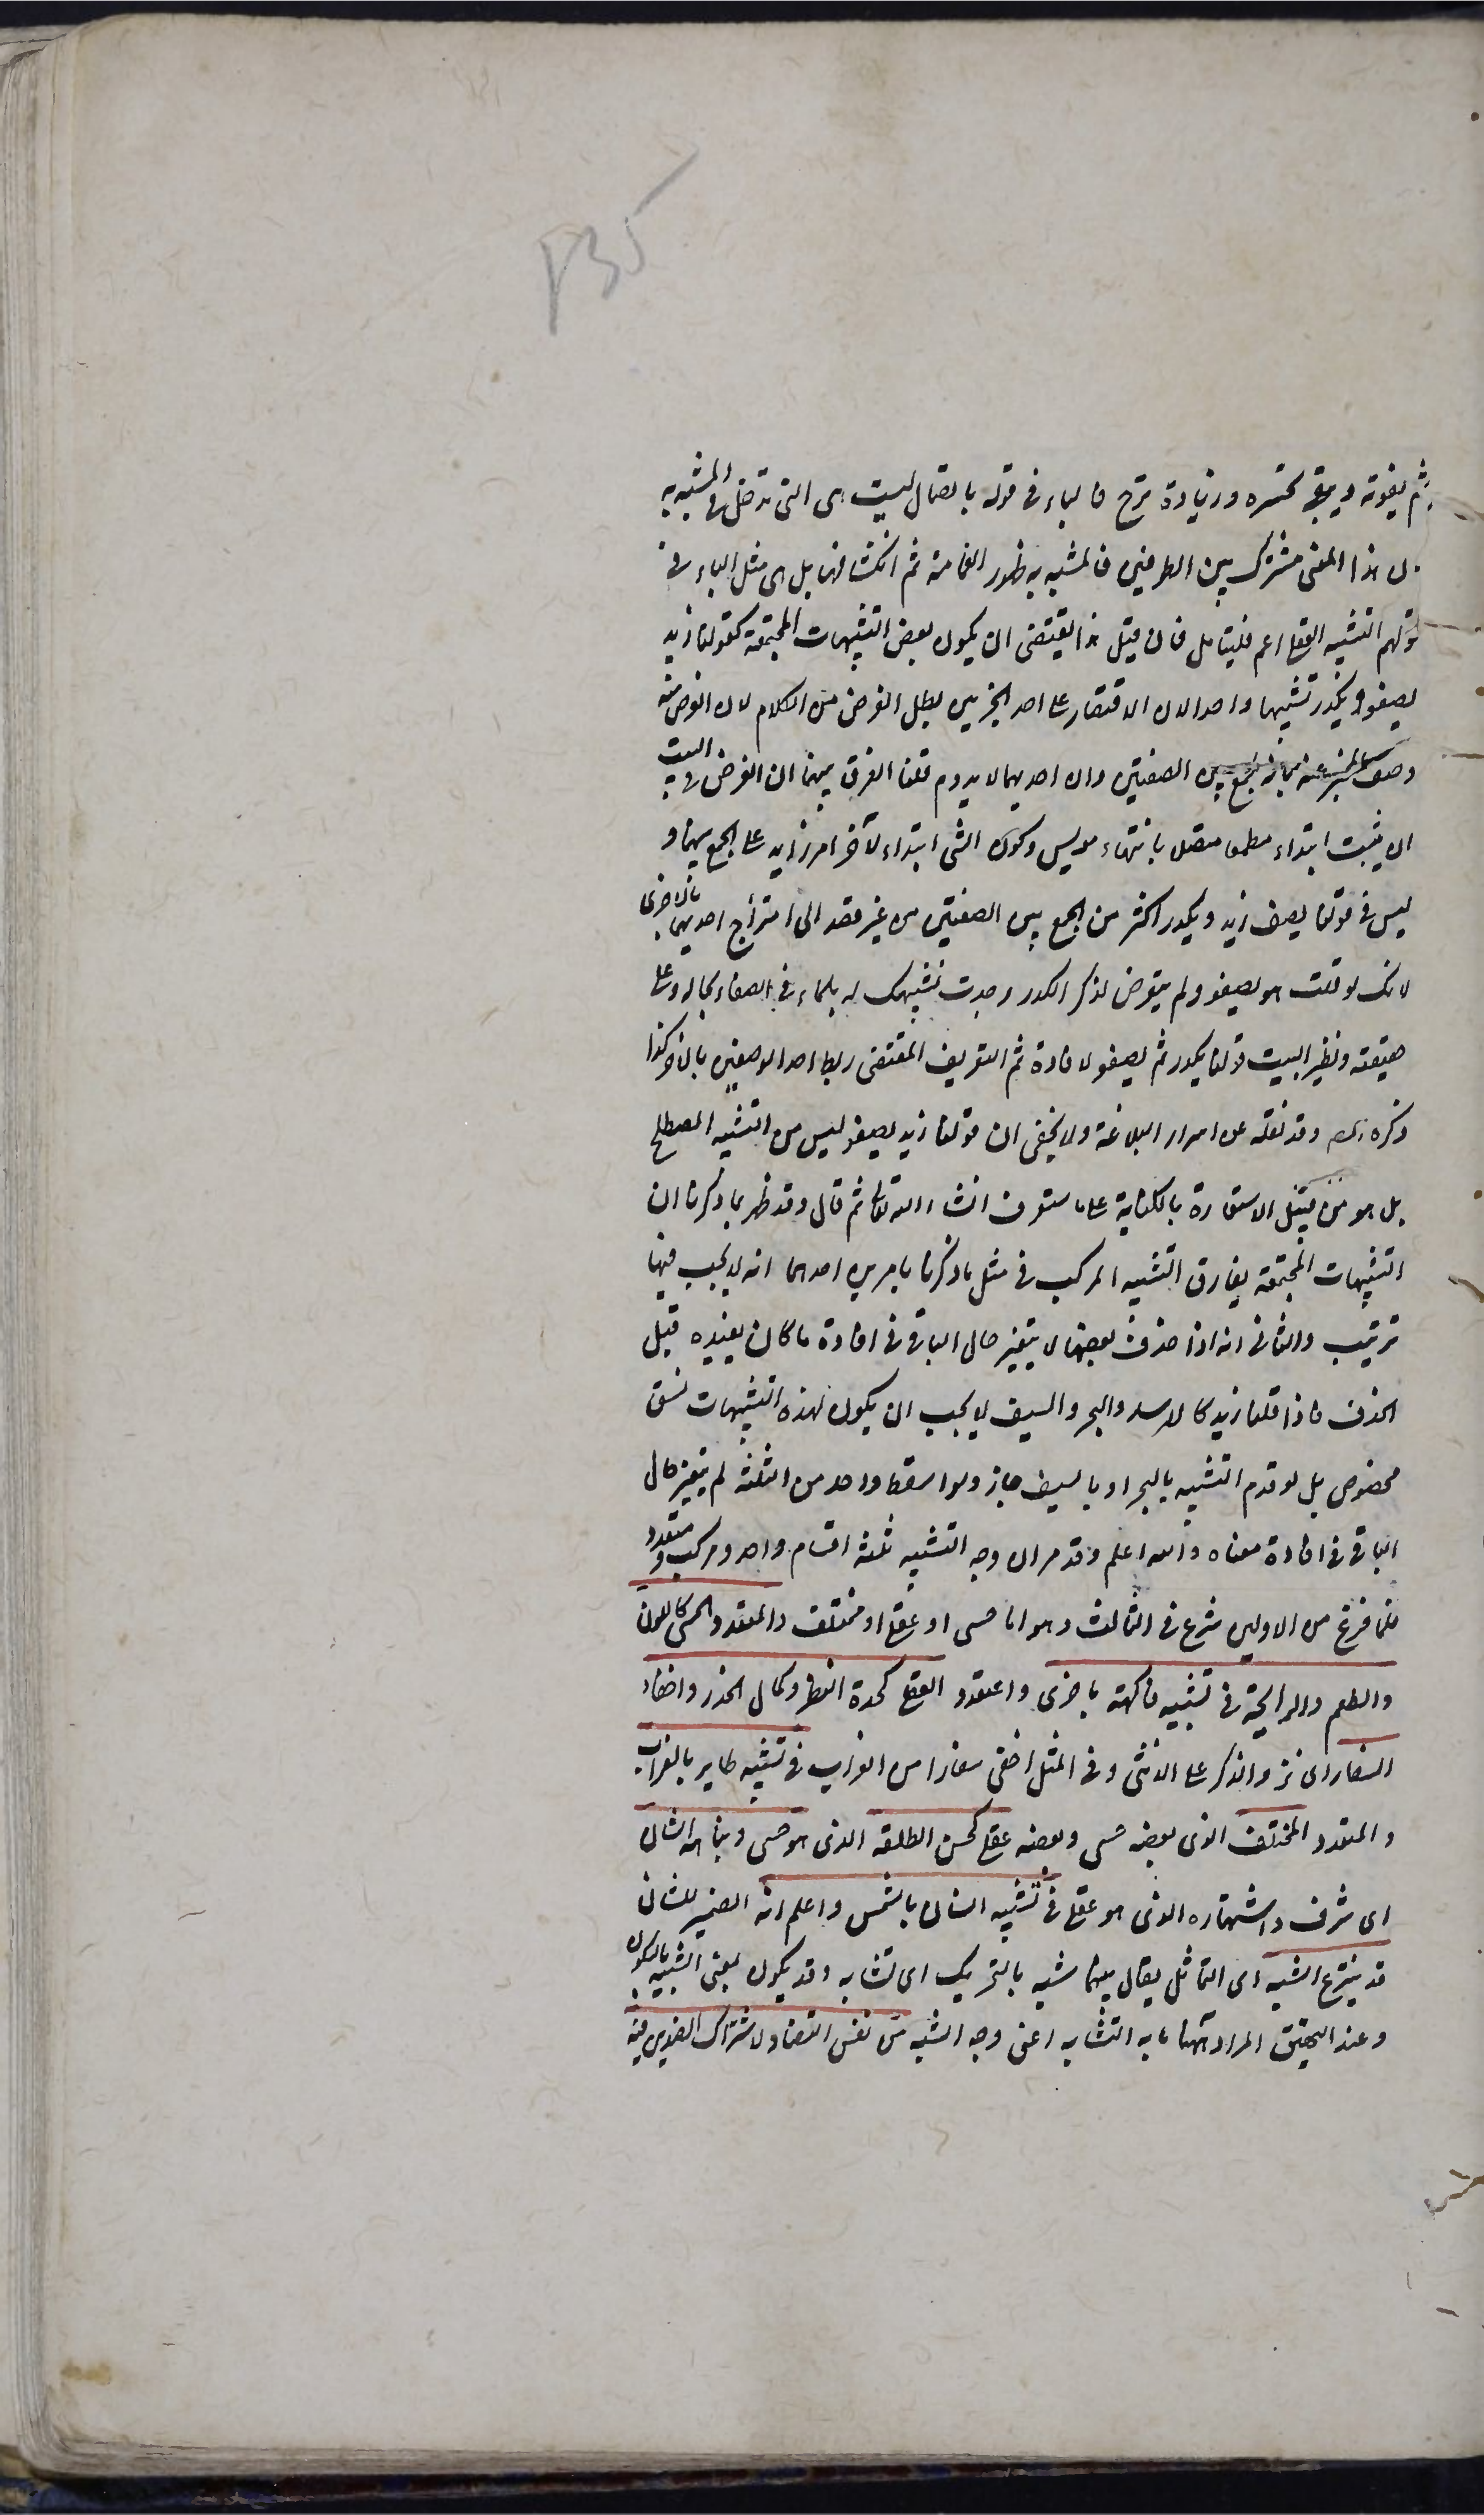 ۲۳۵
ثم يفوته ويبقى تحسره وزيادة ترح فالباء فى قوله باتصال ليست هى التى تدخل فى المشبه به
لان هذا المعنى مشترك بين الطرفين فالمشبه به ظهور الغمامة ثم انكشافها بل هى مثل الباء فى
قولهم التشبيه العقلى اعم فليتامل فان قيل هذا يقتضى ان يكون بعض التشبيهات المجتمعة كقولنا زيد
يصفو ويكدر تشبيها واحدا لان الاقتصار على احد الخبرين يبطل الغرض من الكلام لان الغرض منه
وصف المخبر عنه بانه يجمع بين الصفتين وان احديهما لا يدوم قلنا الفرق بينهما ان الغرض فى البيت
ان يثبت ابتداء مطمع متصل بانتهاء مويس وكون الشى ابتداء لآخر امر زايد على الجمع بينهما و
ليس فى قولنا يصف زيد ويكدر اكثر من الجمع بين الصفتين من غير قصد الى امتزاج احديهما بالاخرى
لانك لو قلت هو يصفو ولم يتعرض لذكر الكدر وجدت تشبيهك له بالماء فى الصفاء بحاله وعلى
حقيقته ونظير البيت قولنا يكدر ثم يصفو لافادة ثم التعريف المقتضى ربط احد الوصفين بالاخر كذا
ذكره المص وقد نقله عن اسرار البلاغة ولا يخفى ان قولنا زيد يصفو ليس من التشبيه المصطلح
بل هو من قبيل الاستعارة بالكناية على ما ستعرف انشاء الله تعالى ثم قال وقد ظهر بما ذكرنا ان
التشبيهات المجتمعة يفارق التشبيه المركب فى مثل ما ذكرنا بامرين احدهما انه لا يجب فيها
ترتيب والثانى انه اذا حذف بعضها لا يتغير حال الباقى فى افادة ما كان يفيده قبل
الحذف فاذا قلنا زيد كالاسد والبحر والسيف لا يجب ان يكون لهذه التشبيهات نسق
مخصوص بل لو قدم التشبيه بالبحر او بالسيف جاز ولو اسقط واحد من الثلثة لم يتغير حال
الباقى فى افادة معناه والله اعلم وقد مر ان وجه التشبيه ثلثة اقسام واحد ومركب ومتعدد
فلما فرغ من الاولين شرع فى الثالث وهو اما حسى او عقلى او مختلف والمتعدد الحسى كاللون
والطعم والرايحة فى تشبيه فاكهة باخرى والمتعدد العقلى كحدة النظر وكمال الحذر واخفاء
السفاد اى نزو الذكر على الانثى وفى المثل اخفى سفادا من الغراب فى تشبيه طاير بالغراب
والمتعدد المختلف الذى بعضه حسى وبعضه عقلى كحسن الطلعة الذى هو حسى ونباهة الشان
اى شرف واشتهاره الذى هو عقلى فى تشبيه انسان بالشمس واعلم انه الضمير للشان
قد ينتزع الشبه اى التماثل يقال بينهما شبه بالتحريك اى تشابه وقد يكون بمعنى الشبيه بالسكون
وعند التحقيق المراد ههنا ما به التشابه اعنى وجه الشبه من نفس التضاد لاشتراك الضدين فيه